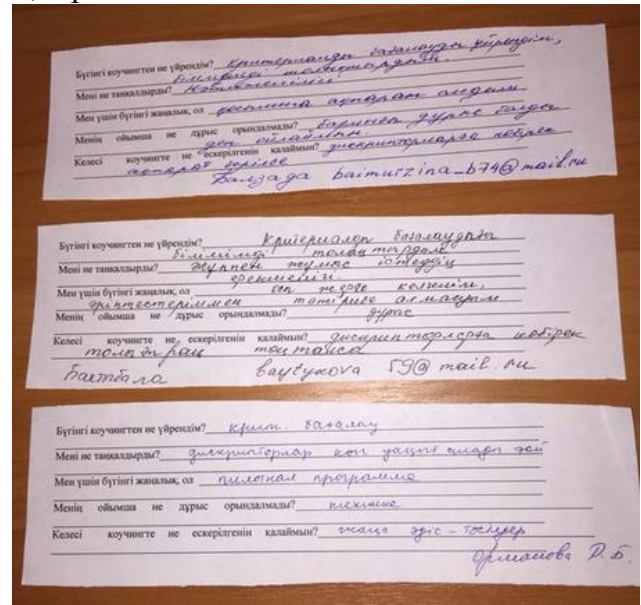 Бүгінгі коучингтен не үйрендім? Критериалды бағалауды үйрендім,
білімімді толықтырдым.
Мені не таңқалдырды?
Мен үшін бүгінгі жаңалық, ол қосымша ақпарат алдым
Менің ойымша не дұрыс орындалмады? барлығы дұрыс болды
деп ойлаймын.
Келесі коучингте не ескерілгенін қалаймын? дискрипторларға көбірек
ақпарат берілсе
Балзада baimurzina_b74@mail.ru
Бүгінгі коучингтен не үйрендім? Критериалды бағалаудағы
білімімді толықтырдым
Мені не таңқалдырды? Жұппен жұмыс істеудің
ерекшелігі.
Мен үшін бүгінгі жаңалық, ол
әріптестеріммен тәжірибе алмасуым
Менің ойымша не дұрыс орындалмады? дұрыс
Келесі коучингте не ескерілгенін қалаймын? дискрипторларға көбірек
толығырақ тоқталса
Бақтбала baytykova 59@mail.ru
Бүгінгі коучингтен не үйрендім? крит. бағалау
Мені не таңқалдырды? дискрипторлар көп уақыт алады
Мен үшін бүгінгі жаңалық, ол пилотная программа
Менің ойымша не дұрыс орындалмады?
Келесі коучингте не ескерілгенін қалаймын? жаңа әдіс-тәсілдер
Орманова Р.Б.